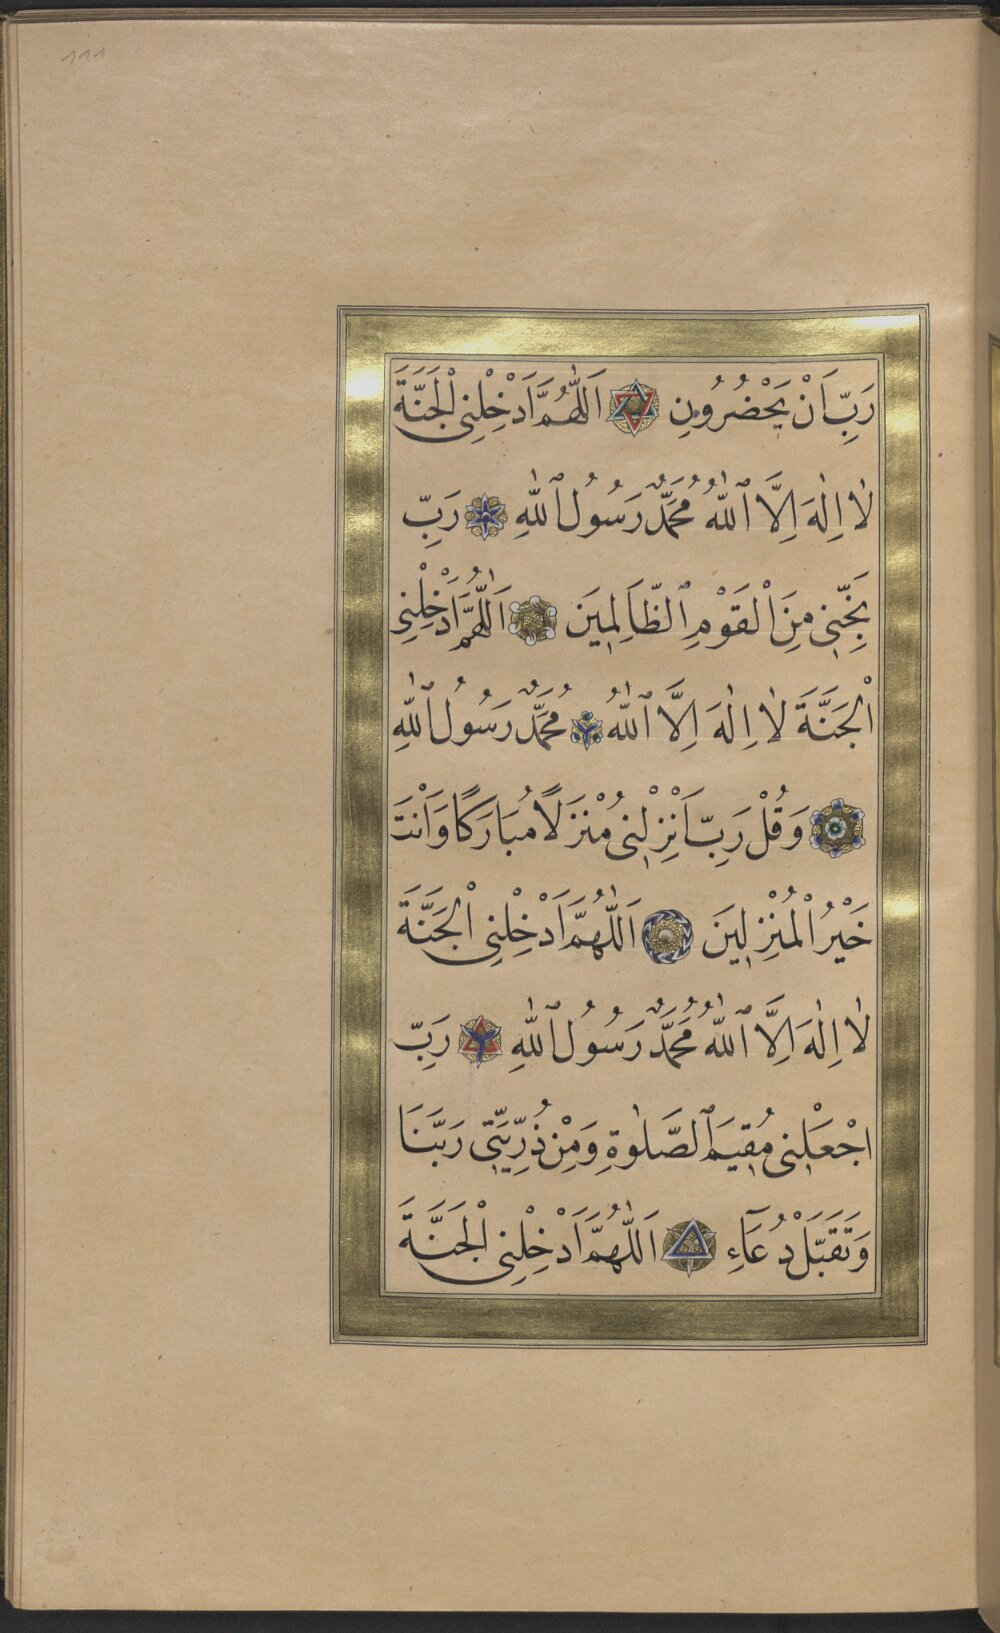 ١١١
رَبِّ اَنْ يَحْضُرُونِ اَللّٰهُمَّ اَدْخِلْنِى الْجَنَّةَ
لٰا اِلٰهَ اِلَّا ٱللّٰهُ مُحَمَّدٌ رَسُولُ ٱللّٰهِ رَبِّ
نَجِّنِى مِنَ الْقَوْمِ ٱلظَّالِمِينَ اَللّٰهُمَّ اَدْخِلْنِى
الْجَنَّةَ لٰا اِلٰهَ اِلَّا ٱللّٰهُ مُحَمَّدٌ رَسُولُ ٱللّٰهِ
وَقُلْ رَبِّ اَنْزِلْنِى مُنْزَلًا مُبَارَكًا وَاَنْتَ
خَيْرُ الْمُنْزِلِينَ اَللّٰهُمَّ اَدْخِلْنِى الْجَنَّةَ
لٰا اِلٰهَ اِلَّا ٱللّٰهُ مُحَمَّدٌ رَسُولُ ٱللّٰهِ رَبِّ
اجْعَلْنِى مُقِيمَ ٱلصَّلٰوةِ وَمِنْ ذُرِّيَّتِى رَبَّنَا
وَتَقَبَّلْ دُعَآءِ اَللّٰهُمَّ اَدْخِلْنِى الْجَنَّةَ